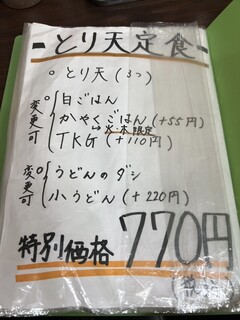 とり天定食
○ とり天 (3つ)
変更可
○ 白ごはん
かやくごはん (+55円)
↳火・木限定
TKG (+110円)
変更可
○ うどんのダシ
小うどん (+220円)
特別価格 770円